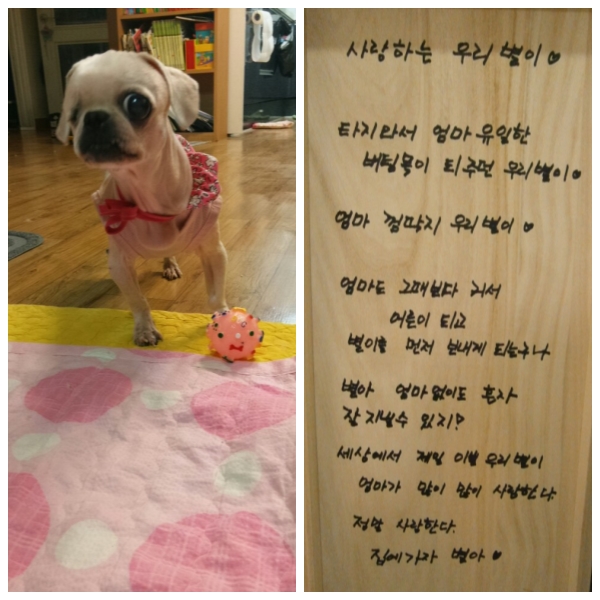 사랑하는 우리 별이♥
타지와서 엄마 유일한
버팀목이 되주던 우리별이♥
엄마 껌딱지 우리별이♥
엄마도 그때보다 커서
어른이 되고
별이를 먼저 보내게 되는구나
별아 엄마없이도 혼자
잘 지낼수 있지?
세상에서 제일 이쁜 우리별이
엄마가 많이 많이 사랑한다.
정말 사랑한다.
집에가자 별아♥